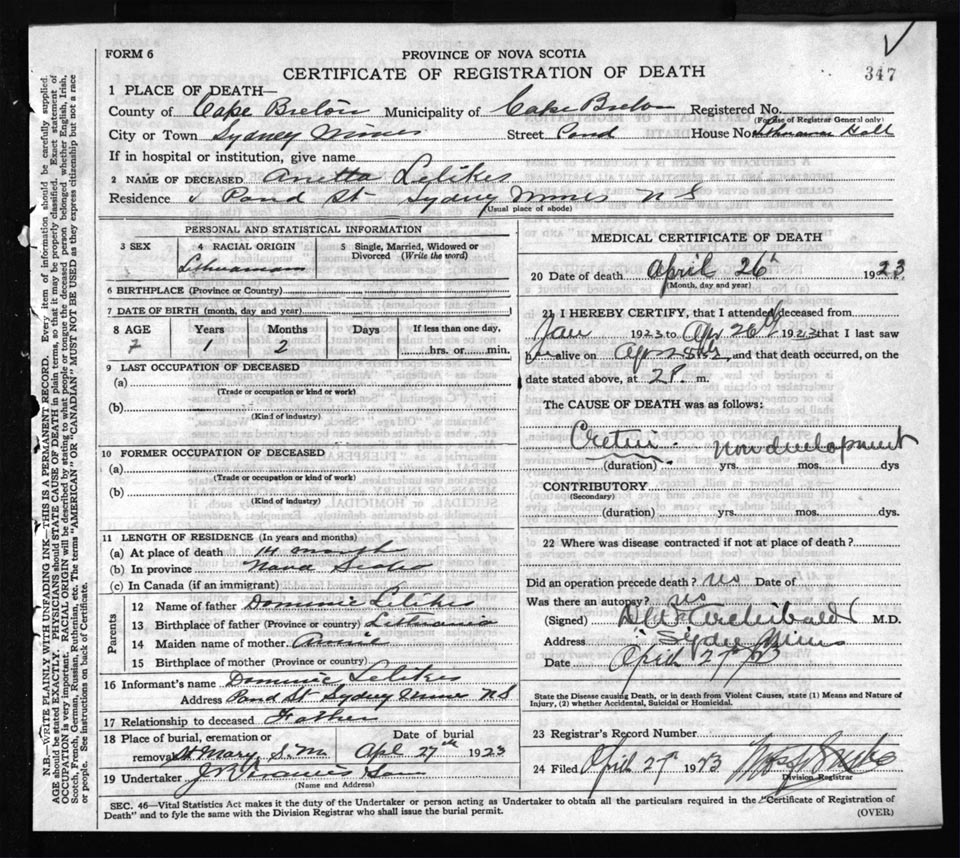 347
FORM 6
PROVINCE OF NOVA SCOTIA
CERTIFICATE OF REGISTRATION OF DEATH
1 PLACE OF DEATH—
County of Cape Breton Municipality of Cape Breton Registered No.
(For use of Registrar General only)
City or Town Sydney Mines Street Pond House No. Hall
If in hospital or institution, give name
2 NAME OF DECEASED Anetta Lelikes
Residence Pond St Sydney Mines N S
(Usual place of abode)
PERSONAL AND STATISTICAL INFORMATION
3 SEX
4 RACIAL ORIGIN
5 Single, Married, Widowed or Divorced (Write the word)
Lithuanian
6 BIRTHPLACE (Province or Country)
7 DATE OF BIRTH (month, day and year)
8 AGE Years Months Days If less than one day,
1 2 hrs. or min.
9 LAST OCCUPATION OF DECEASED
(a)
(Trade or occupation or kind or work)
(b)
(Kind of industry)
10 FORMER OCCUPATION OF DECEASED
(a)
(Trade or occupation or kind of work)
(b)
(Kind of industry)
11 LENGTH OF RESIDENCE (In years and months)
(a) At place of death 14 months
(b) In province Nova Scotia
(c) In Canada (if an immigrant)
Parents
12 Name of father Dominic Lelikes
13 Birthplace of father (Province or country) Lithuania
14 Maiden name of mother Annie
15 Birthplace of mother (Province or country)
16 Informant's name Dominic Lelikes
Address Pond St Sydney Mines N S
17 Relationship to deceased Father
18 Place of burial, cremation or Date of burial
removal St Mary, S. M. Apl 27th 1923
19 Undertaker J R Francis & Son
(Name and Address)
MEDICAL CERTIFICATE OF DEATH
20 Date of death April 26 1923
(Month, day and year)
21 I HEREBY CERTIFY, that I attended deceased from
Jan 1923 to Apr 26 1923 that I last saw
alive on Apr 25, and that death occurred, on the
date stated above, at 2 P. m.
The CAUSE OF DEATH was as follows:
Cretin. Non development
(duration) yrs. mos. dys
CONTRIBUTORY
(Secondary)
(duration) yrs. mos. dys.
22 Where was disease contracted if not at place of death?
Did an operation precede death? no Date of
Was there an autopsy? no
(Signed) Archibald M.D.
Address Sydney Mines
Date April 27/23
State the Disease causing Death, or in death from Violent Causes, state (1) Means and Nature of
Injury, (2) whether Accidental, Suicidal or Homicidal.
23 Registrar's Record Number
24 Filed April 27 1923
Division Registrar
SEC. 46—Vital Statistics Act makes it the duty of the Undertaker or person acting as Undertaker to obtain all the particulars required in the "Certificate of Registration of
Death" and to fyle the same with the Division Registrar who shall issue the burial permit.
(OVER)
N.B.—WRITE PLAINLY WITH UNFADING INK—THIS IS A PERMANENT RECORD. Every item of information should be carefully supplied.
AGE should be stated EXACTLY. PHYSICIANS should STATE CAUSE OF DEATH in plain terms, so that it may be properly classified. Exact statement of
OCCUPATION is very important. RACIAL ORIGIN will be described by stating to what people or tongue the deceased person belonged whether English, Irish,
Scotch, French, German, Russian, Ruthenian, etc. The terms "AMERICAN" OR "CANADIAN" MUST NOT BE USED as they express citizenship but not a race
or people. See instructions on back of Certificate.